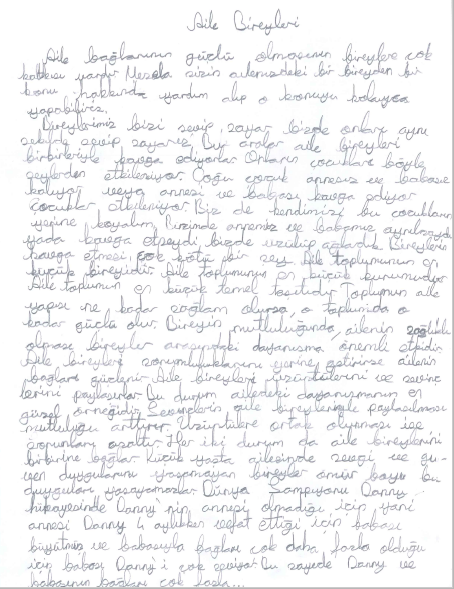 Aile Bireyleri
Aile bağlarının güçlü olmasının bireylere çok
katkısı vardır Mesela sizin ailenizdeki bir bireyden bir
konu hakkında yardım alıp o konuyu kolayca
yapabiliriz.
Bireylerimiz bizi sevip, sayar bizde onları aynı
şekilde sevip sayarız. Bu aralar aile bireyleri
birbirleriyle kavga ediyorlar Onların çocukları böyle
şeylerden etkileniyor Çoğu çocuk annesiz ve babasız
kalıyor veya annesi ve babası kavga ediyor
Çocuklar etkileniyor Biz de kendimizi bu çocukların
yerine koyalım Bizimde annemiz ve babamız ayrılsaydı
yada kavga etseydi, bizde üzülüp ağlardık Bireylerin
kavga etmesi çok kötü bir şey Aile toplumunun en
küçük bireyidir Aile toplumunun en küçük kurumudur
Aile toplumun en küçük temel taşıdır Toplumun aile
yapısı ne kadar sağlam olursa, o toplumda o
kadar güçlü olur. Bireyin mutluluğunda, ailenin sağlıklı
olması bireyler arasındaki dayanışma önemli etkidir
Aile bireyleri sorumluluklarını yerine getirirse ailenin
bağları güçlenir Aile bireyleri üzüntülerini ve sevinç
lerini paylaşırlar Bu durum ailedeki dayanışmanın en
güzel örneğidir Sevinçlerin aile bireyleriyle paylaşılması
mutluluğu arttırır. Üzüntülere ortak olunması ise
sorunları azaltır Her iki durum da aile bireylerini
birbirine bağlar Küçük yaşta ailesinde sevgi ve gü-
ven duygularını yaşamayan bireyler ömür boyu bu
duyguları yaşayamazlar Dünya Şampiyonu Danny
hikayesinde Danny'nin annesi olmadığı için yani
annesi Danny 4 aylıkken vefat ettiği için babası
büyütmüş ve babasıyla bağları çok daha fazla olduğu
için babası Danny'i çok seviyor Bu sayede Danny ve
babasının bağları çok fazla...